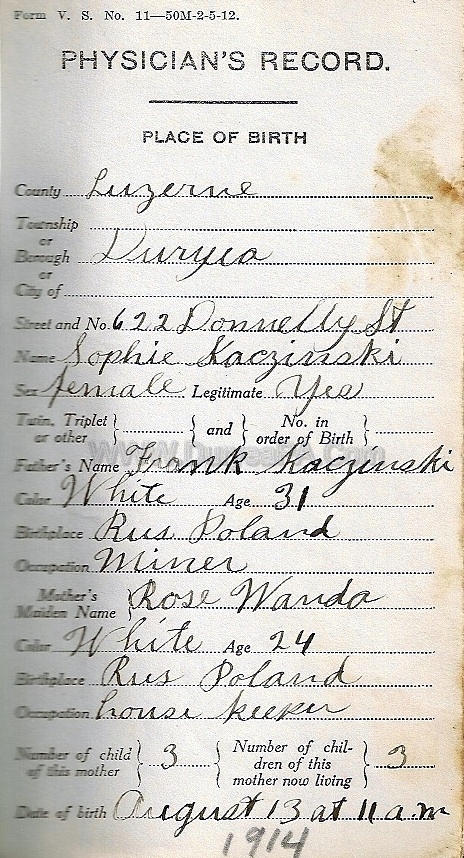 Form V. S. No. 11—50M-2-5-12.
PHYSICIAN'S RECORD.
PLACE OF BIRTH
County Luzerne
Township
or
Borough Duryea
or
City of
Street and No. 622 Donnelly St
Name Sophie Kaczinski
Sex female Legitimate Yes
Twin, Triplet or other } and { No. in order of Birth }
Father's Name Frank Kaczinski
Color White Age 31
Birthplace Rus Poland
Occupation Miner
Mother's Maiden Name } Rose Wanda
Color White Age 24
Birthplace Rus Poland
Occupation house keeper
Number of child of this mother } 3 { Number of chil-dren of this mother now living } 3
Date of birth August 13 at 11 a.m
1914